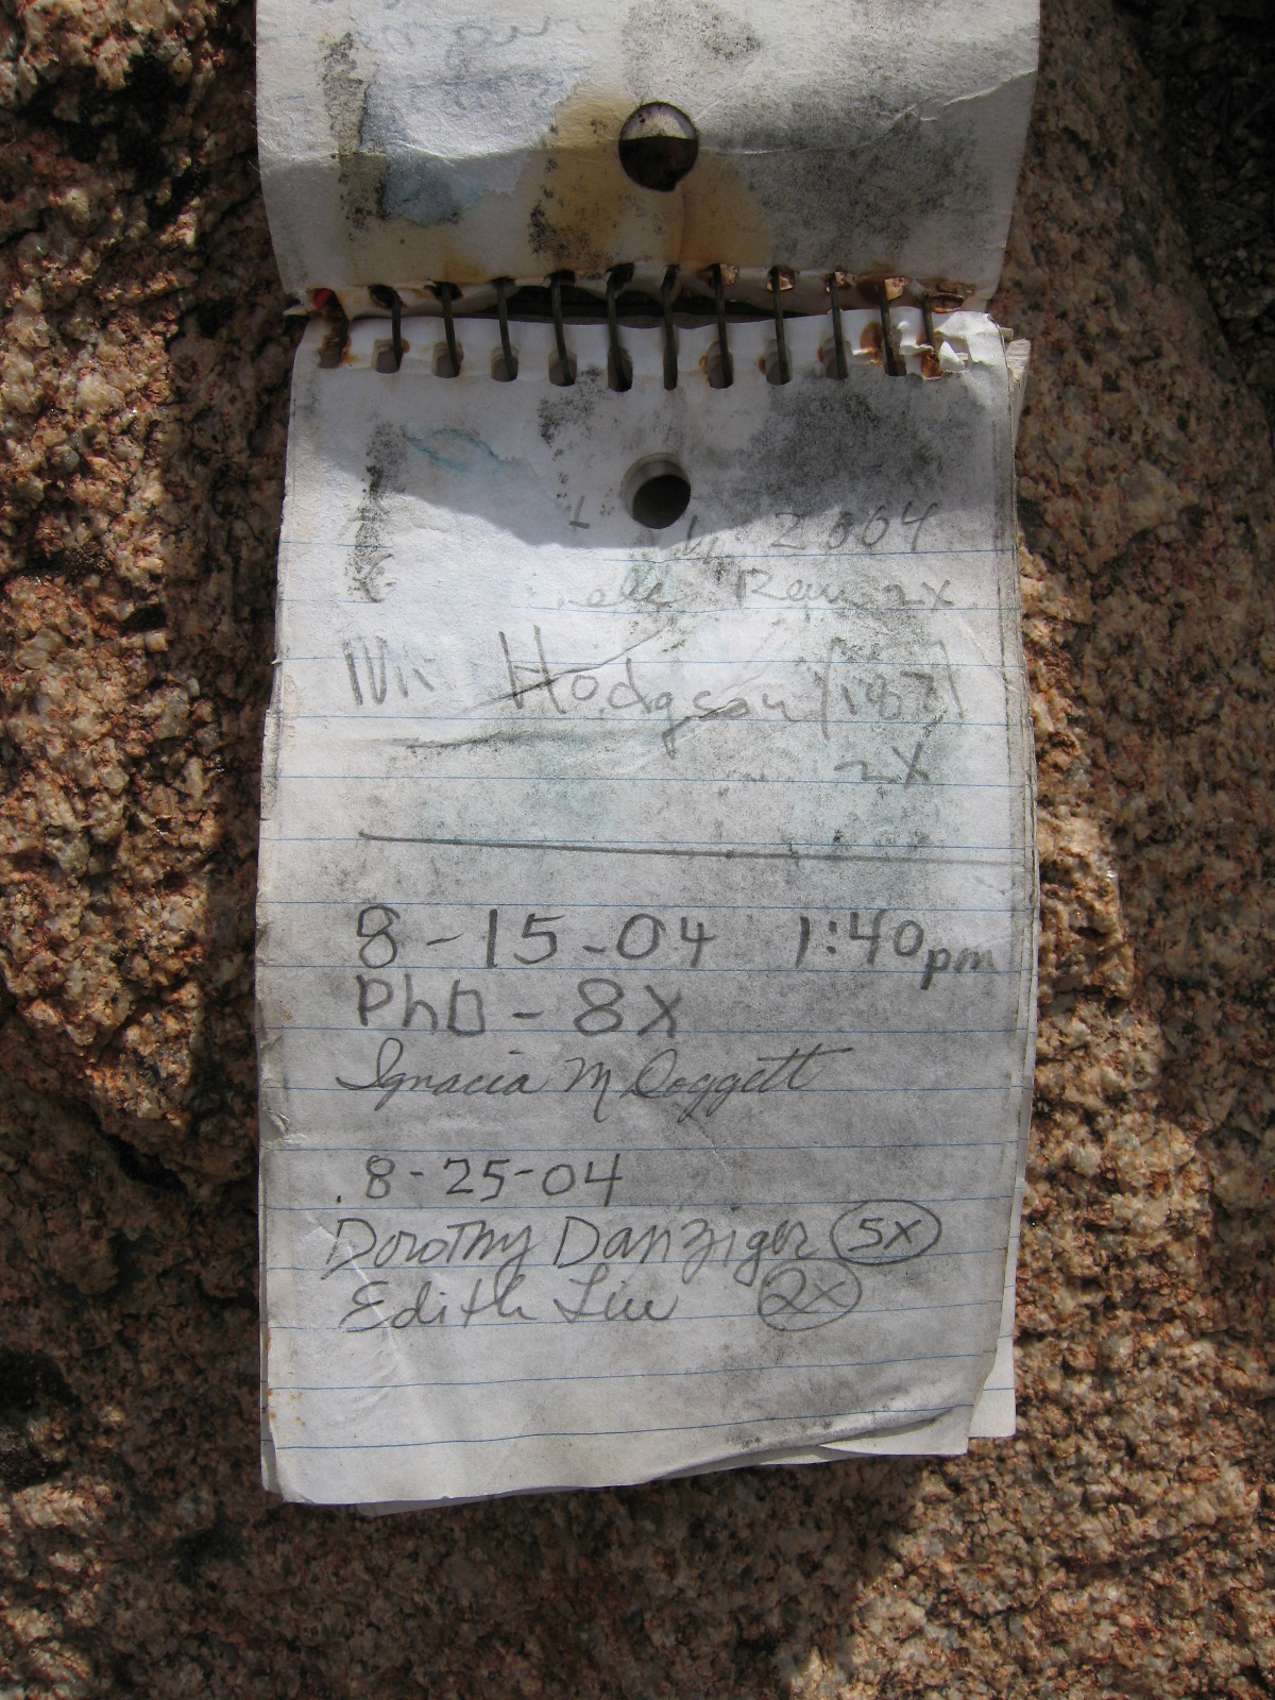 2004
2X
Hodgson
2X
8-15-04 1:40pm
PhD - 8X
Ignacia M Doggett
8-25-04
Dorothy Danziger 5X
Edith Liu 2X